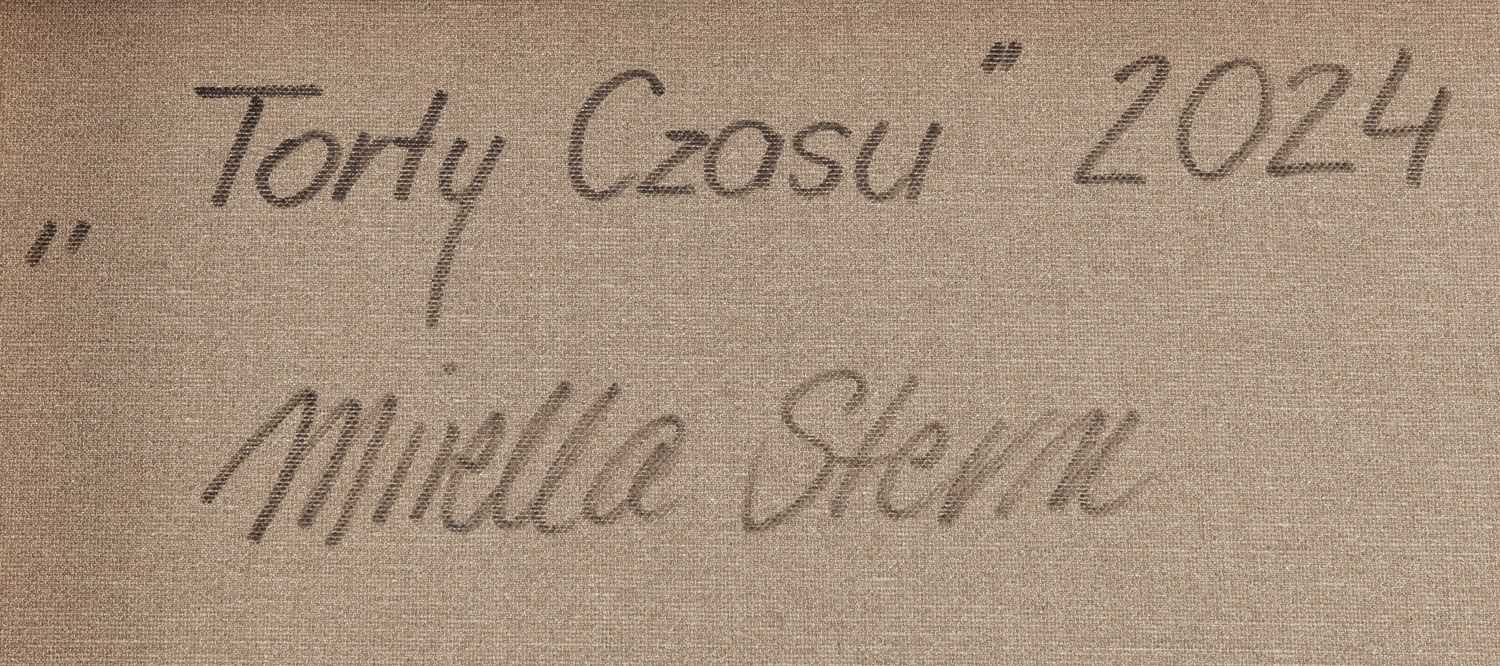 „Torty Czasu" 2024
Mirella Stern